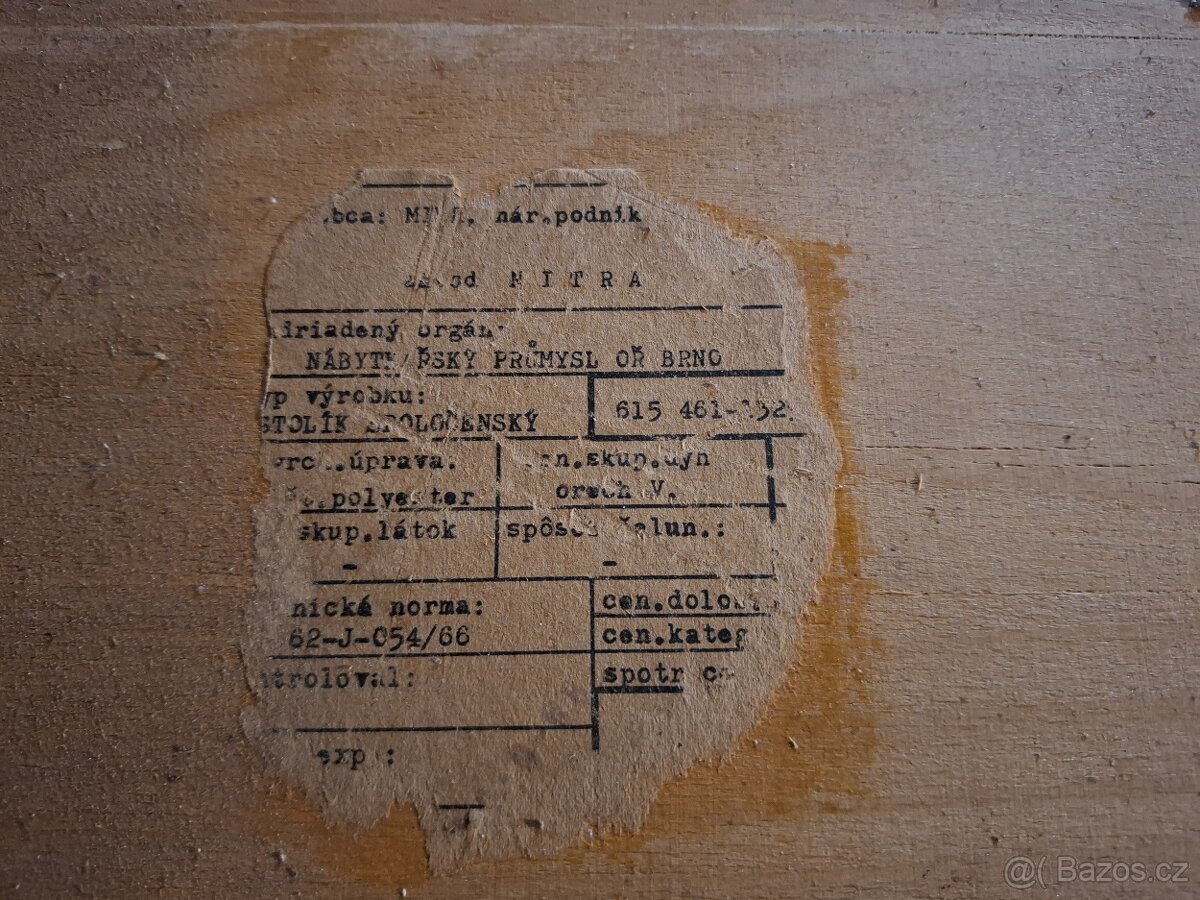 bca: nár.podnik
NITRA
iriadený orgán:
NÁBYT ŘSKÝ PRŮMYSL OŘ BRNO
yp výrobku:
STOLÍK SPOLOČENSKÝ
615 461-132
vrch.úprava:
polyester
cen.skup.dýh
orech V.
skup.látok
-
spôsob čalun.:
-
nická norma:
62-J-054/66
cen.dolož
cen.kateg
ntroloval:
spotr c
exp :
@( Bazos.cz